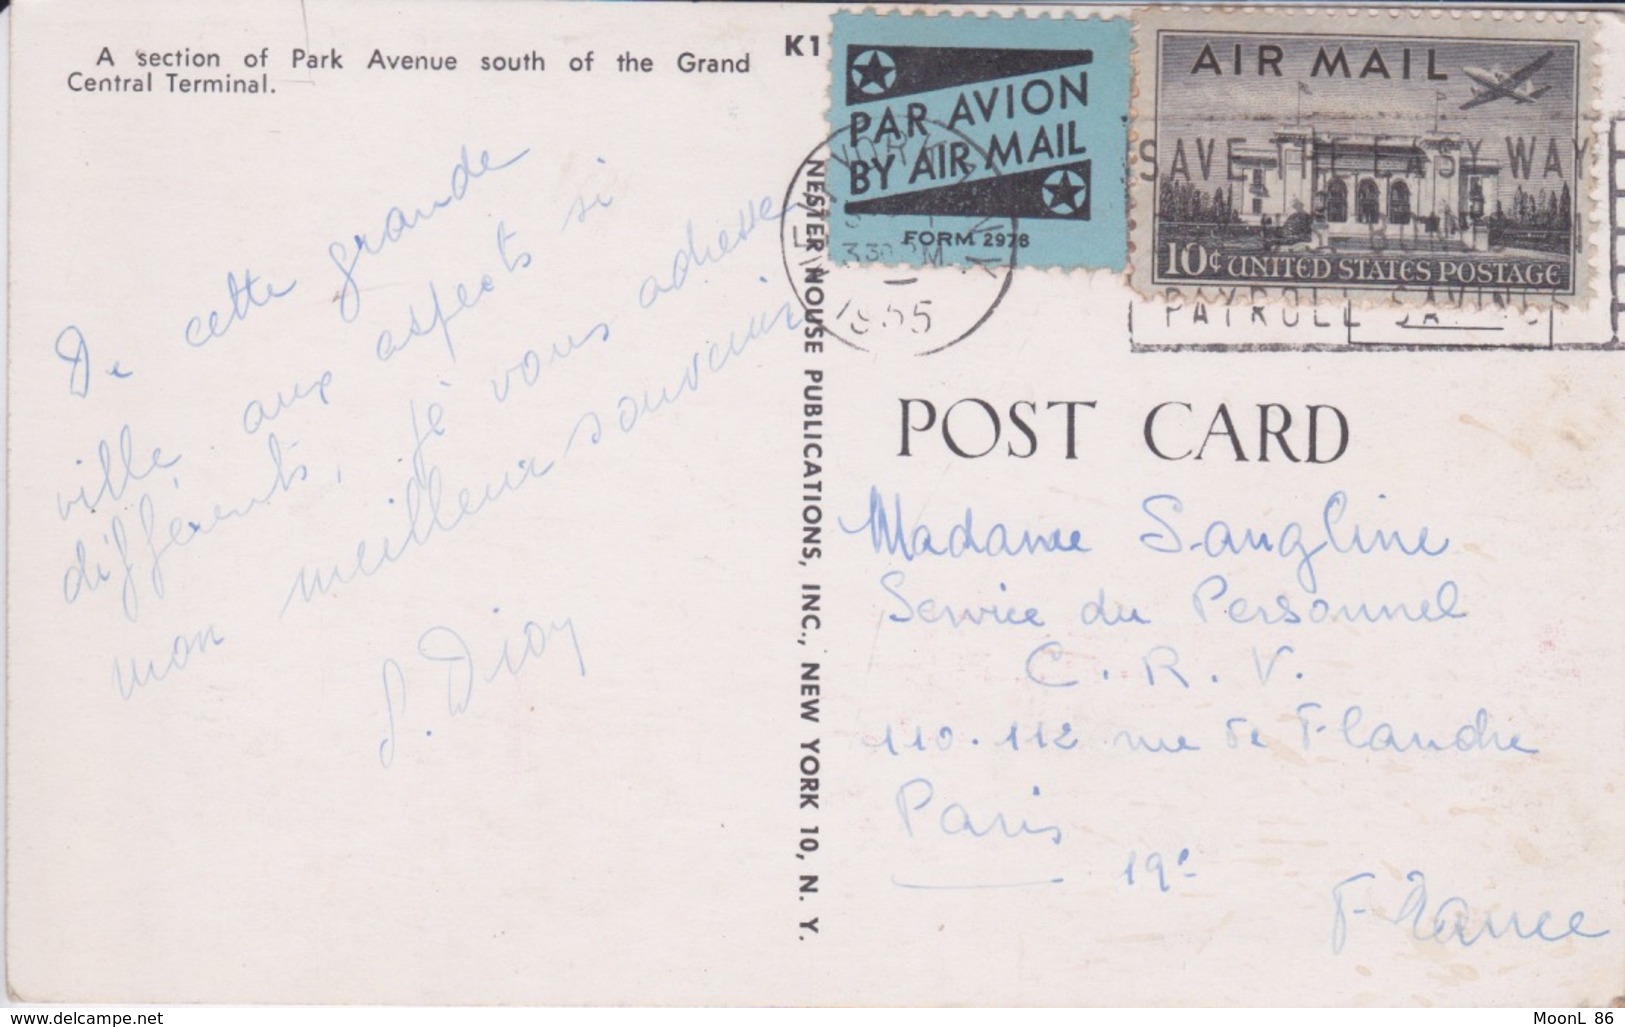 A section of Park Avenue south of the Grand
Central Terminal.
K1
De cette grande
ville aux aspects si
différents, je vous adresse
mon meilleur souvenir
S. Diou
NESTER HOUSE PUBLICATIONS, INC., NEW YORK 10, N. Y.
PAR AVION
BY AIR MAIL
FORM 2978
AIR MAIL
10¢ UNITED STATES POSTAGE
330 PM
1955
SAVE THE EASY WAY
PAYROLL SAVINGS
POST CARD
Madame Sangline
Service du Personnel
C. R. V.
110-112 rue de Flandre
Paris
19e
France
www.delcampe.net
MoonL 86